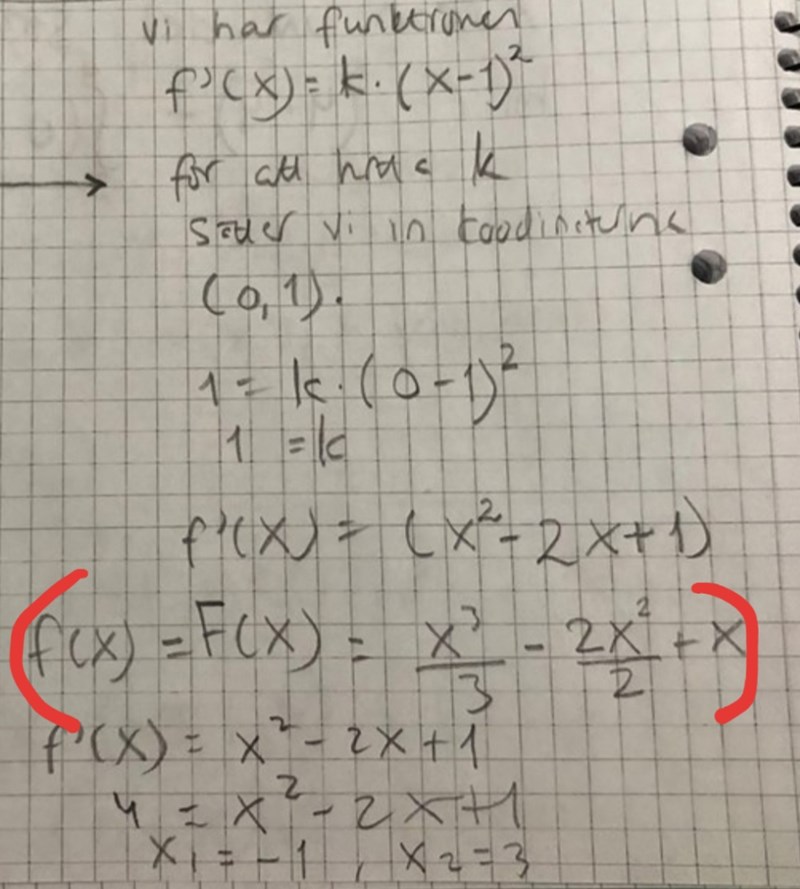 vi har funktionen
f'(x) = k · (x-1)²
för att hitta k
sätter vi in koodinaterna
(0,1).
1 = k · (0-1)²
1 = k
f'(x) = (x² - 2x + 1)
f(x) = F(x) = x³/3 - 2x²/2 + x
f'(x) = x² - 2x + 1
4 = x² - 2x + 1
x₁ = -1 , x₂ = 3